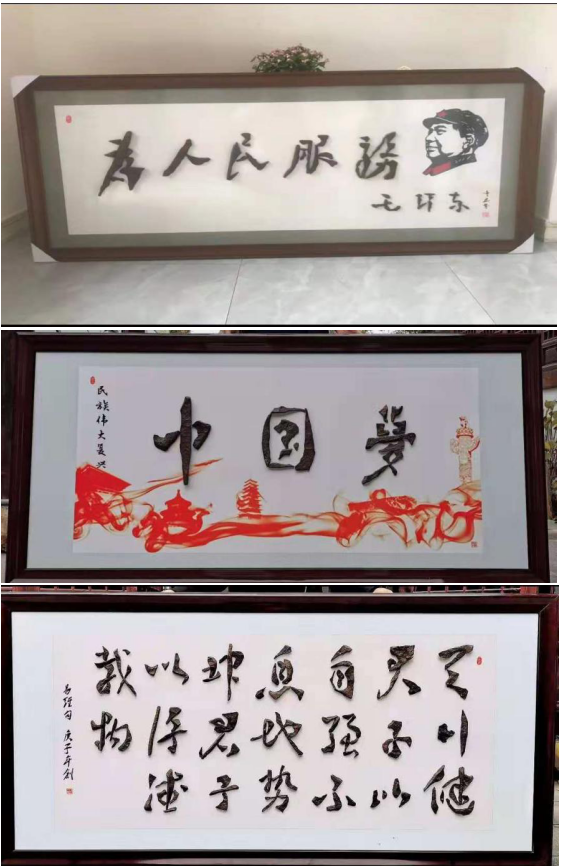 為人民服務
毛泽东
民族伟大复兴
中国夢
天行健
君子以
自强不
息地势
坤君子
以厚德
载物
易经句 庚子年创